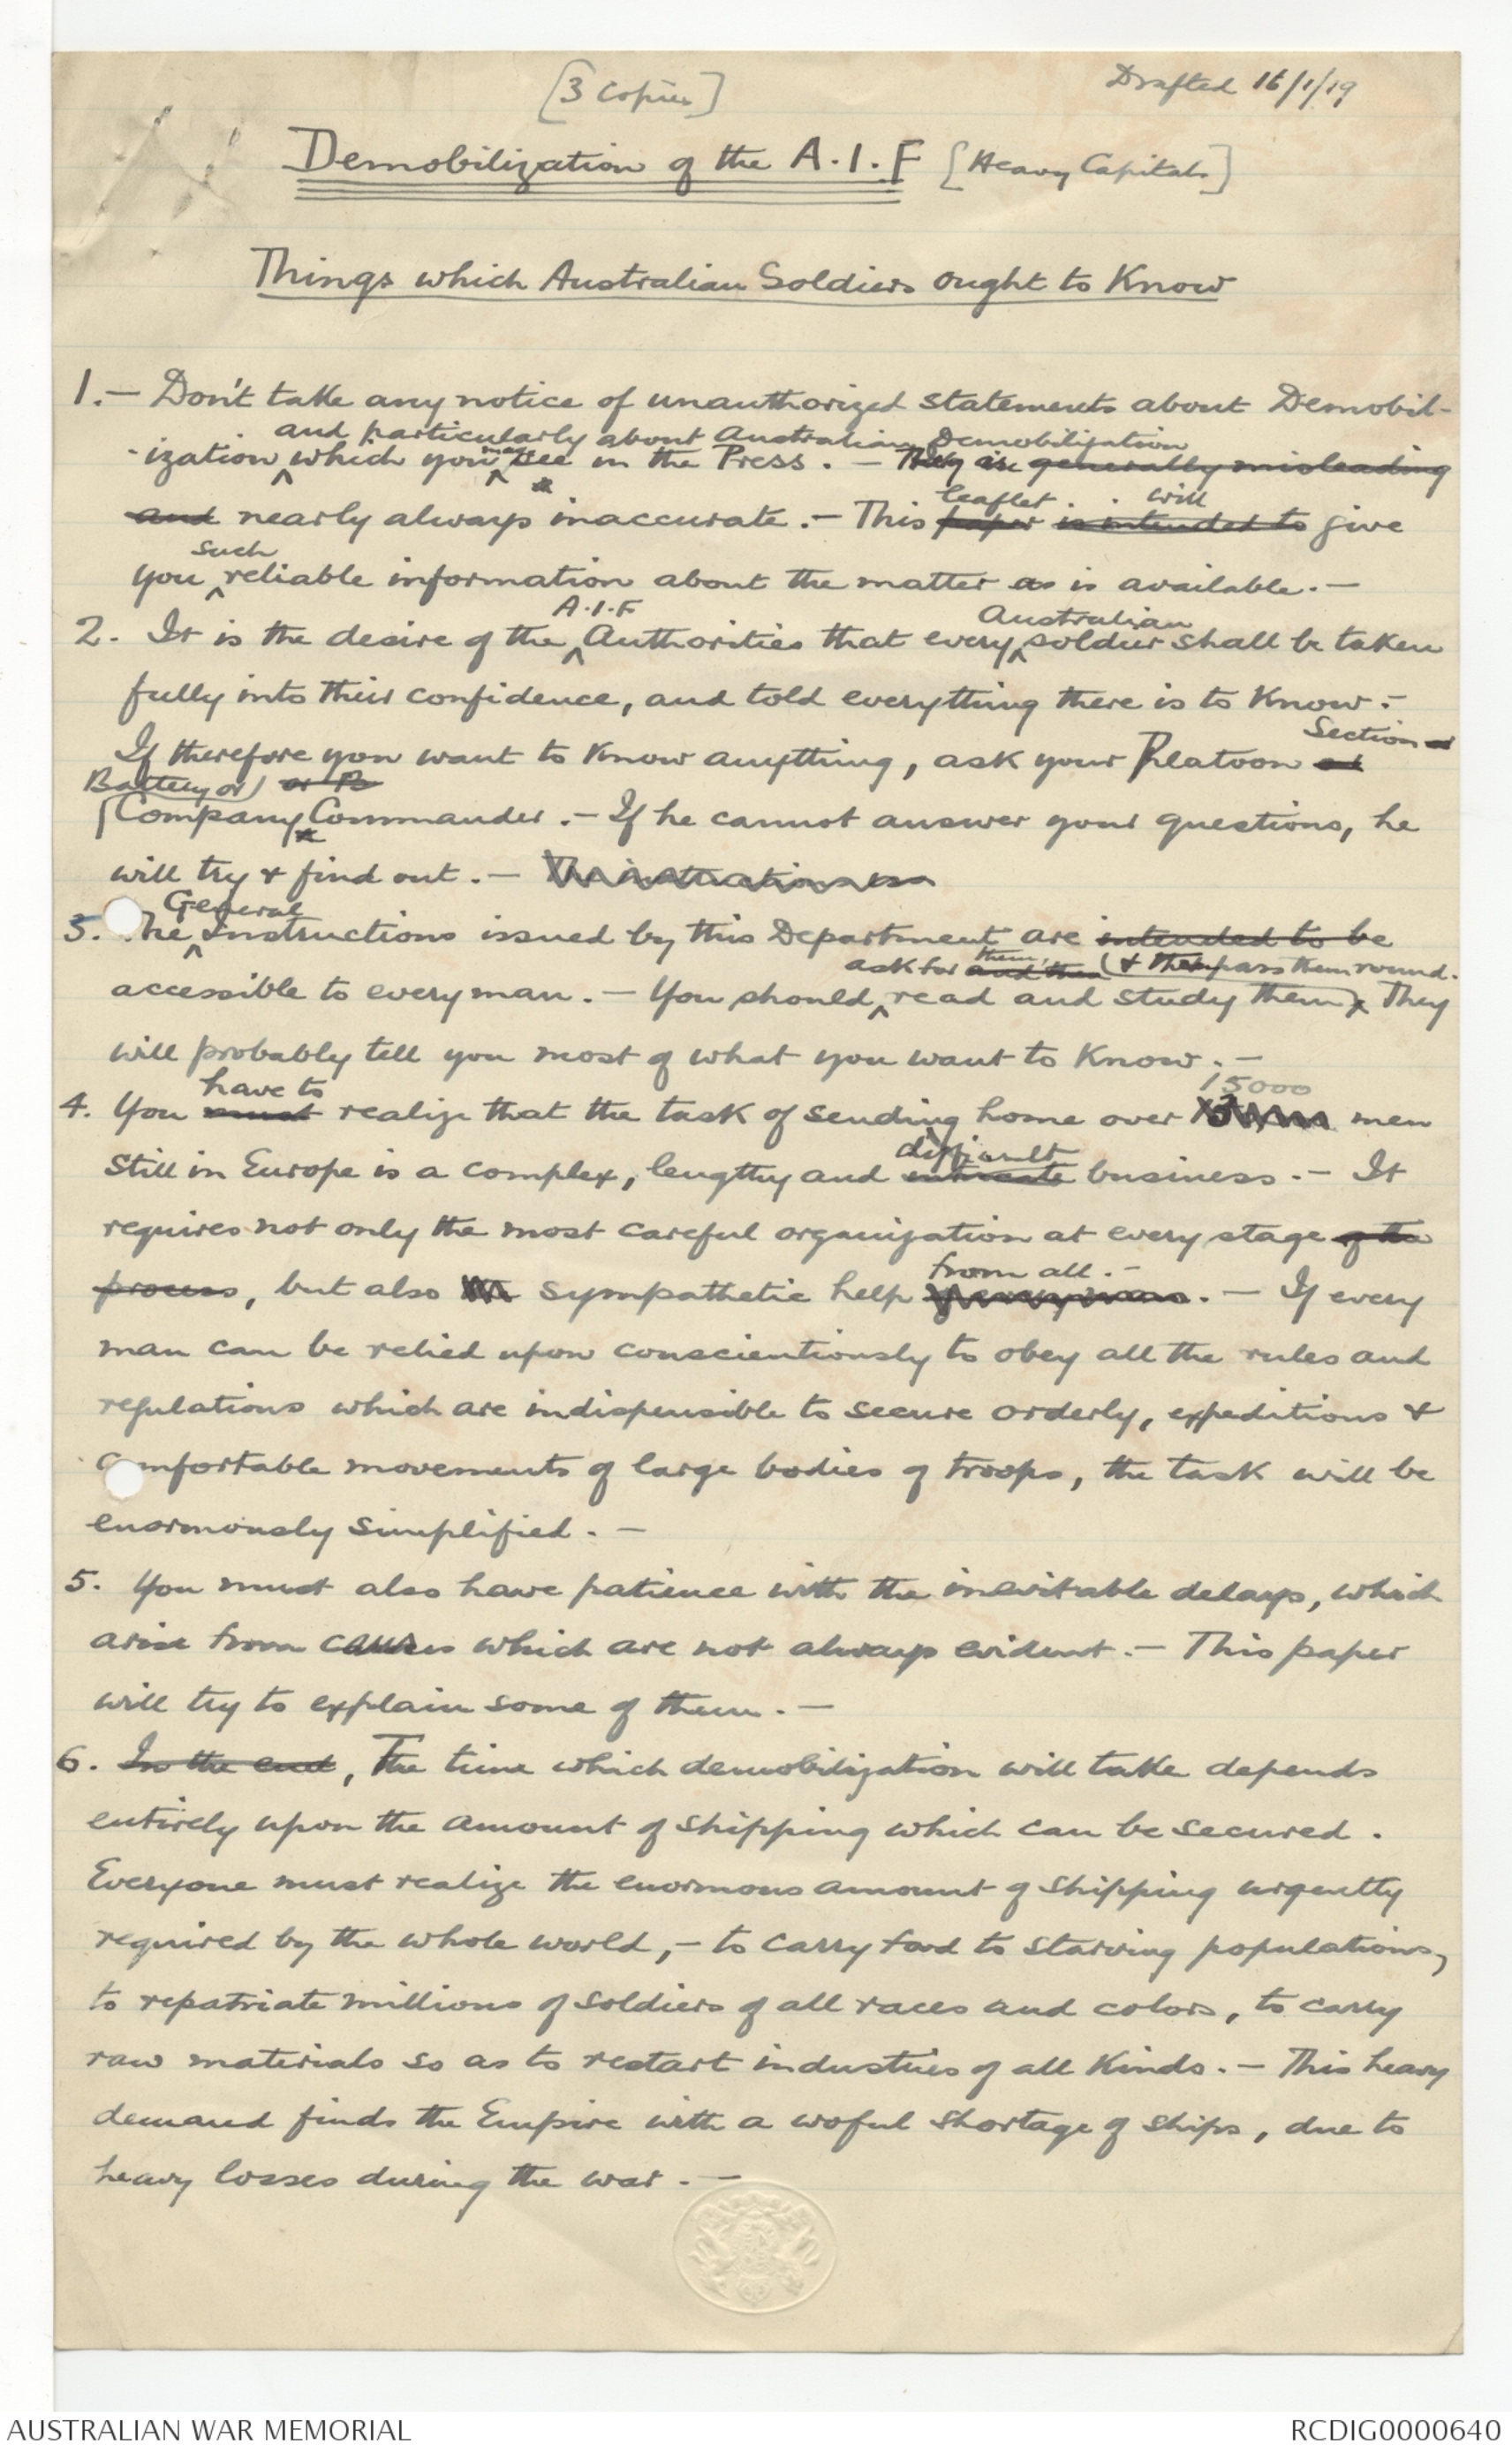 [3 Copies]
Drafted 16/1/19
Demobilization of the A.I.F [Heavy Capitals]
Things which Australian Soldiers ought to Know
1.- Don't take any notice of unauthorized statements about Demobil-
and particularly about Australian Demobilization
-ization which you may see in the Press. - They are generally misleading
leaflet . . will
and nearly always inaccurate. - This paper is intended to give
such
you reliable information about the matter as is available. -
A.I.F Australian
2. It is the desire of the Authorities that every soldier shall be taken
fully into their confidence, and told everything there is to Know. -
Section
If therefore you want to Know anything, ask your Platoon or
Battery or) or B
(Company Commander. - If he cannot answer your questions, he
will try & find out. - The instructions
General
3. The Instructions issued by this Department are intended to be
ask for them, (& then pass them round.
accessible to every man. - You should read and study them). They
will probably tell you most of what you want to Know. -
have to 15000
4. You must realize that the task of sending home over men
difficult
Still in Europe is a complex, lengthy and intricate business. - It
requires not only the most careful organization at every stage of the
from all. -
process, but also sympathetic help of every man. - If every
man can be relied upon conscientiously to obey all the rules and
regulations which are indispensible to secure orderly, expeditious &
comfortable movements of large bodies of troops, the task will be
enormously simplified. -
5. You must also have patience with the inevitable delays, which
arise from causes which are not always evident. - This paper
will try to explain some of them. -
6. In the end, The time which demobilization will take depends
entirely upon the amount of shipping which can be secured.
Everyone must realize the enormous amount of shipping urgently
required by the whole world, - to carry food to starving populations,
to repatriate millions of soldiers of all races and colors, to carry
raw materials so as to restart industries of all Kinds. - This heavy
demand finds the Empire with a woful shortage of ships, due to
heavy losses during the war. -
AUSTRALIAN WAR MEMORIAL
RCDIG0000640